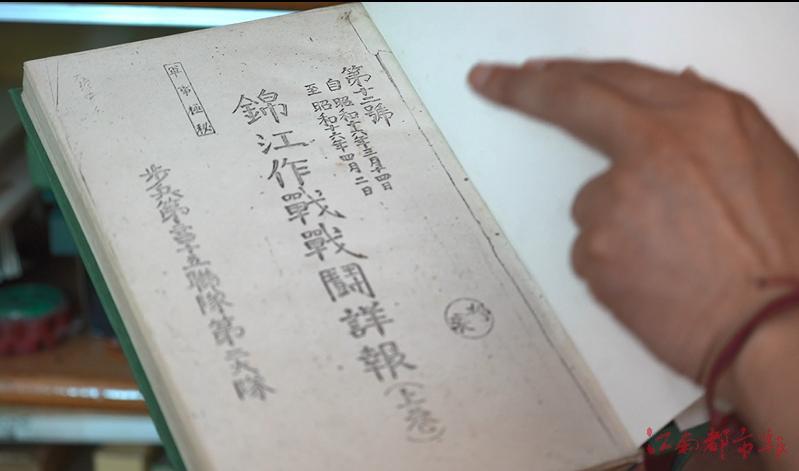 第十二號
自昭和十六年三月十四日
至昭和十六年四月二日
錦江作戰戰鬪詳報(上卷)
軍事極秘
步兵第二百十五聯隊第二大隊
江南都市報